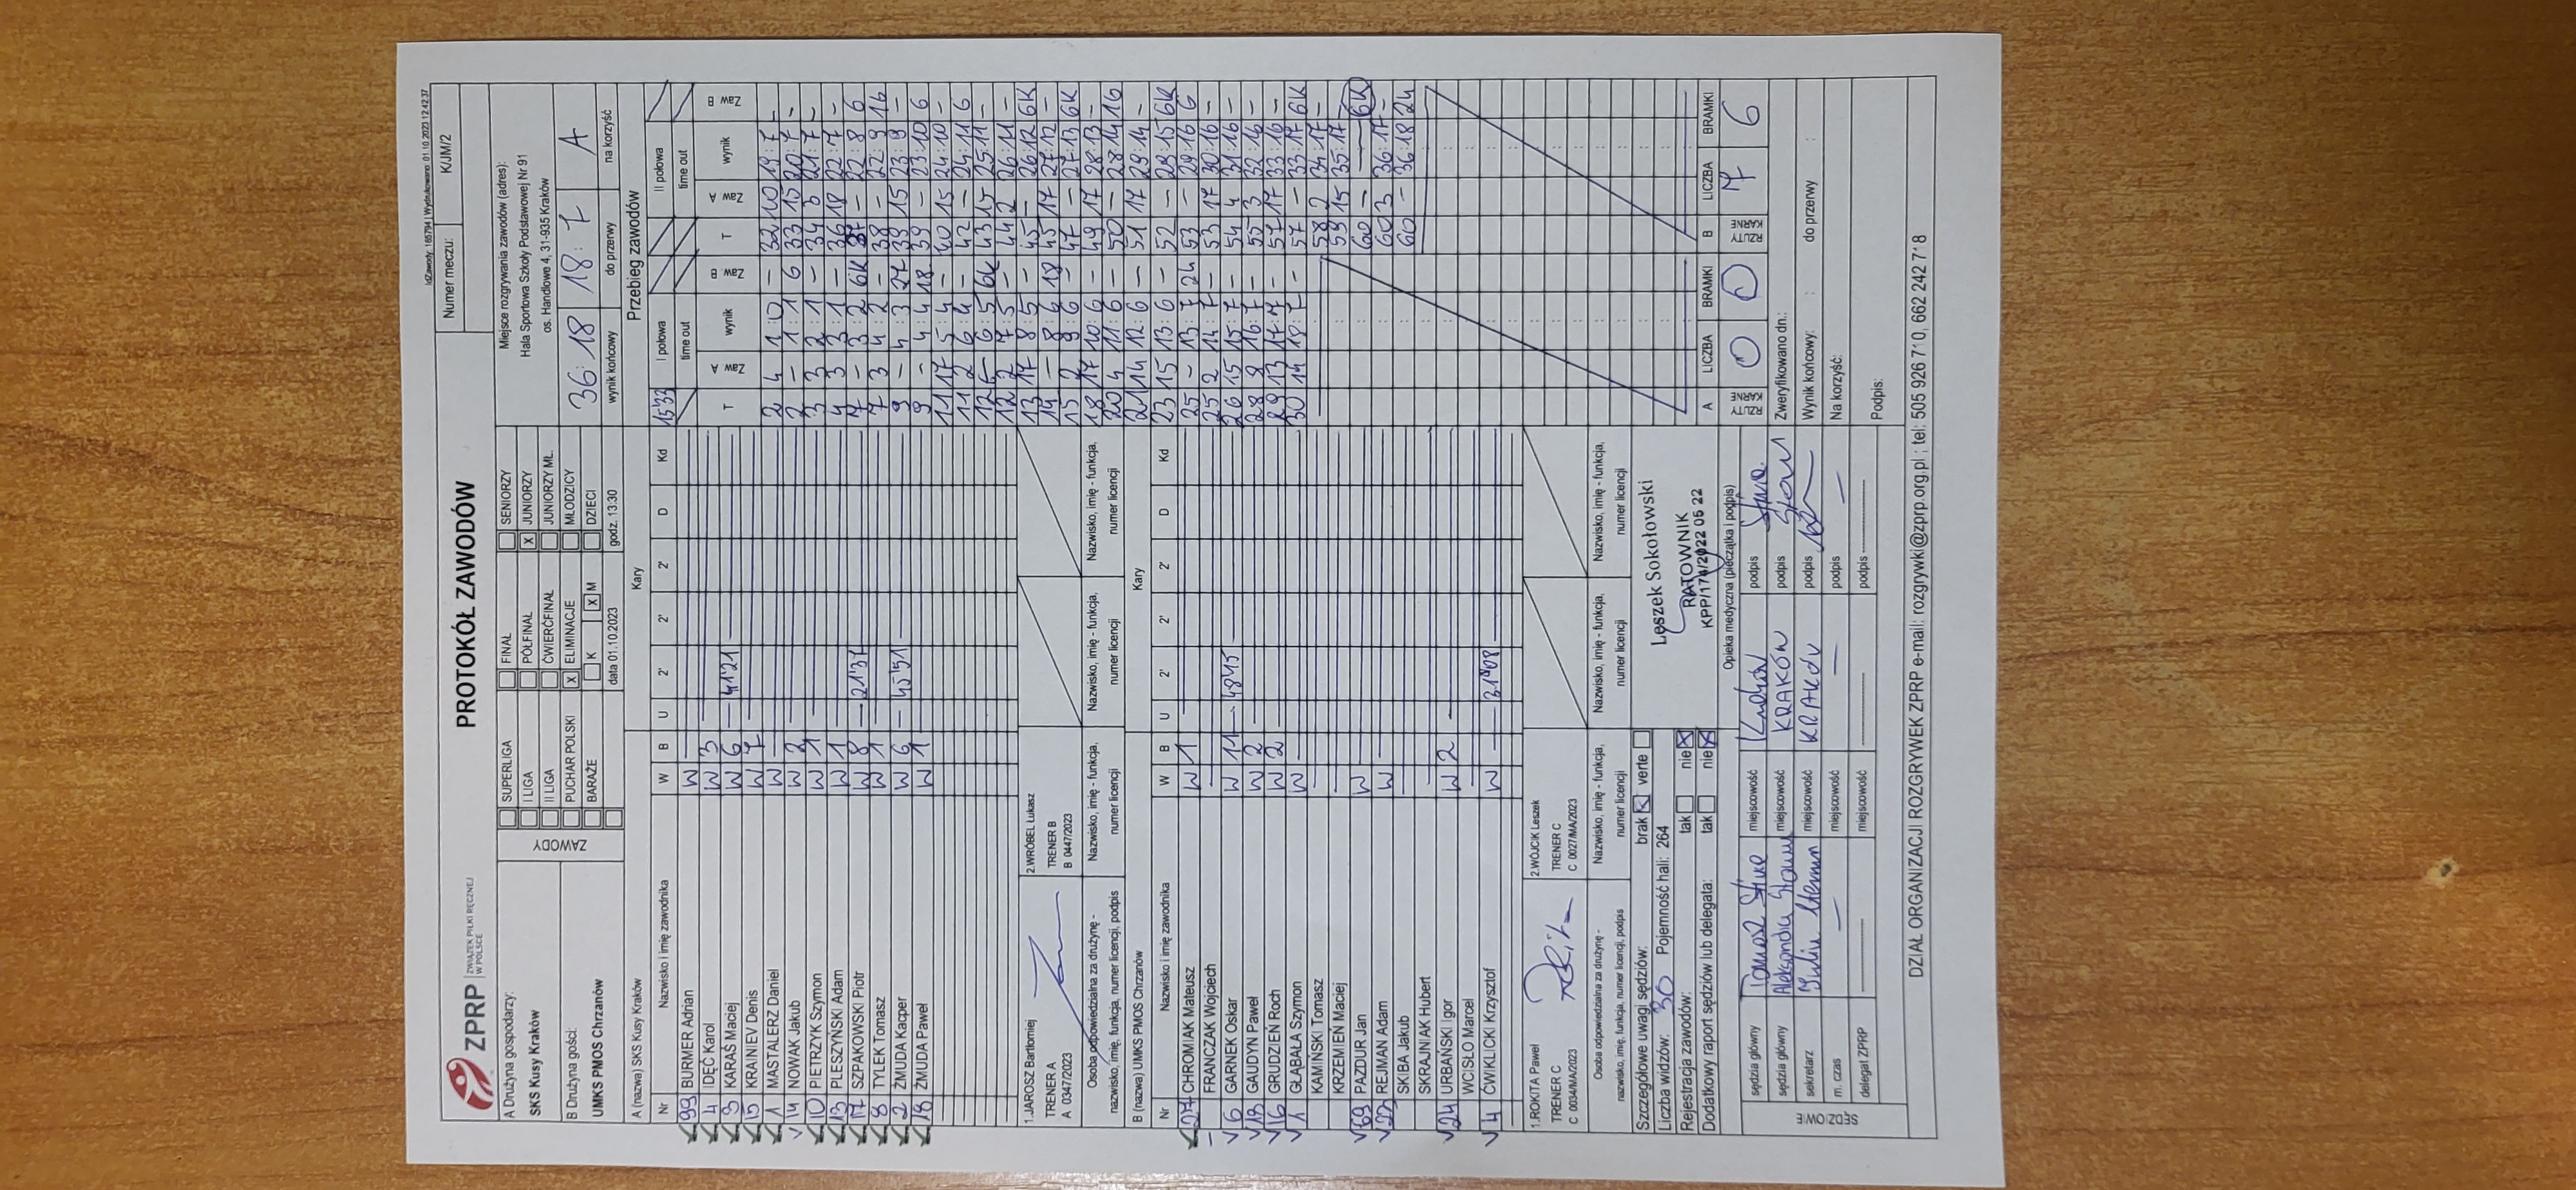 IdZawody: 165794 | Wydrukowano: 01.10.2023 12:42:37
ZPRP ZWIĄZEK PIŁKI RĘCZNEJ W POLSCE
PROTOKÓŁ ZAWODÓW
Numer meczu: K/JM/2
A Drużyna gospodarzy:
SKS Kusy Kraków
B Drużyna gości:
UMKS PMOS Chrzanów
ZAWODY
SUPERLIGA FINAŁ SENIORZY
I LIGA PÓŁFINAŁ X JUNIORZY
II LIGA ĆWIERĆFINAŁ JUNIORZY MŁ.
PUCHAR POLSKI X ELIMINACJE MŁODZICY
BARAŻE K X M DZIECI
data 01.10.2023 godz. 13:30
Miejsce rozgrywania zawodów (adres):
Hala Sportowa Szkoły Podstawowej Nr 91
os. Handlowe 4, 31-935 Kraków
36:18 18:7 A
wynik końcowy do przerwy na korzyść
A (nazwa) SKS Kusy Kraków Kary
Nr Nazwisko i imię zawodnika W B U 2' 2' 2' D Kd
99 BURMER Adrian W
4 IDEĆ Karol W 3
3 KARAŚ Maciej W 6 41'21
15 KRAINIEV Denis W 7
1 MASTALERZ Daniel W
14 NOWAK Jakub W 2
10 PIETRZYK Szymon W 1
13 PLESZYŃSKI Adam W 1
17 SZPAKOWSKI Piotr W 8
8 TYLEK Tomasz W 1
2 ŻMUDA Kacper W 6 45'51
18 ŻMUDA Paweł W 1
1.JAROSZ Bartłomiej 2.WRÓBEL Łukasz
TRENER A TRENER B
A 0347/2023 B 0447/2023
Osoba odpowiedzialna za drużynę - Nazwisko, imię - funkcja, Nazwisko, imię - funkcja, Nazwisko, imię - funkcja,
nazwisko, imię, funkcja, numer licencji, podpis numer licencji numer licencji numer licencji
B (nazwa) UMKS PMOS Chrzanów Kary
Nr Nazwisko i imię zawodnika W B U 2' 2' 2' D Kd
27 CHROMIAK Mateusz W 1
FRANCZAK Wojciech
6 GARNEK Oskar W 11 48'15
18 GAUDYN Paweł W 2
16 GRUDZIEŃ Roch W 2
1 GŁĄBAŁA Szymon W
KAMIŃSKI Tomasz
KRZEMIEŃ Maciej
69 PAZDUR Jan W
REJMAN Adam W
SKIBA Jakub
SKRAJNIAK Hubert
24 URBAŃSKI Igor W 2
WCISŁO Marcel
4 ĆWIKLICKI Krzysztof W 31'08
1.ROKITA Paweł 2.WÓJCIK Leszek
TRENER C TRENER C
C 0034/MA/2023 C 0027/MA/2023
Osoba odpowiedzialna za drużynę - Nazwisko, imię - funkcja, Nazwisko, imię - funkcja, Nazwisko, imię - funkcja,
nazwisko, imię, funkcja, numer licencji, podpis numer licencji numer licencji numer licencji
Szczegółowe uwagi sędziów: brak X verte
Liczba widzów: 30 Pojemność hali: 264
Rejestracja zawodów: tak nie X
Dodatkowy raport sędziów lub delegata: tak nie X
Leszek Sokołowski
RATOWNIK
KPP/174/2022 05 22
Opieka medyczna (pieczątka i podpis)
SĘDZIOWIE
sędzia główny Tomasz miejscowość Kraków podpis
sędzia główny Aleksandra miejscowość KRAKÓW podpis
sekretarz Julia miejscowość KRAKÓW podpis
m. czas — miejscowość — podpis —
delegat ZPRP miejscowość podpis
Przebieg zawodów
I połowa II połowa
15:33 time out time out
T Zaw A wynik Zaw B T Zaw A wynik Zaw B
2 4 1:0 – 32 10 19:7 –
2 – 1:1 6 33 15 20:7 –
3 3 2:1 – 34 3 21:7 –
4 3 3:1 – 36 18 22:7 –
7 – 3:2 6K 37 – 22:8 6
7 3 4:2 – 38 – 22:9 16
9 – 4:3 27 39 15 23:9 –
9 – 4:4 18 39 – 23:10 6
11 17 5:4 – 40 15 24:10 –
11 2 6:4 – 42 – 24:11 6
12 – 6:5 6K 43 15 25:11 –
12 2 7:5 – 44 2 26:11 –
13 17 8:5 – 45 – 26:12 6K
14 – 8:6 18 45 17 27:12 –
15 2 9:6 – 47 – 27:13 6K
18 17 10:6 – 49 17 28:13 –
20 4 11:6 – 50 – 28:14 16
21 14 12:6 – 51 17 29:14 –
23 15 13:6 – 52 – 29:15 6K
25 – 13:7 24 53 – 29:16 6
25 2 14:7 – 53 17 30:16 –
26 15 15:7 – 54 4 31:16 –
28 8 16:7 – 55 3 32:16 –
29 13 17:7 – 57 17 33:16 –
30 14 18:7 – 57 – 33:17 6K
58 2 34:17 –
59 15 35:17 –
60 – — 6K
60 3 36:17 –
60 – 36:18 24
RZUTY KARNE A LICZBA BRAMKI RZUTY KARNE B LICZBA BRAMKI
0 0 7 6
Zweryfikowano dn.:
Wynik końcowy: : do przerwy :
Na korzyść:
Podpis:
DZIAŁ ORGANIZACJI ROZGRYWEK ZPRP e-mail: rozgrywki@zprp.org.pl ; tel: 505 926 710, 662 242 718